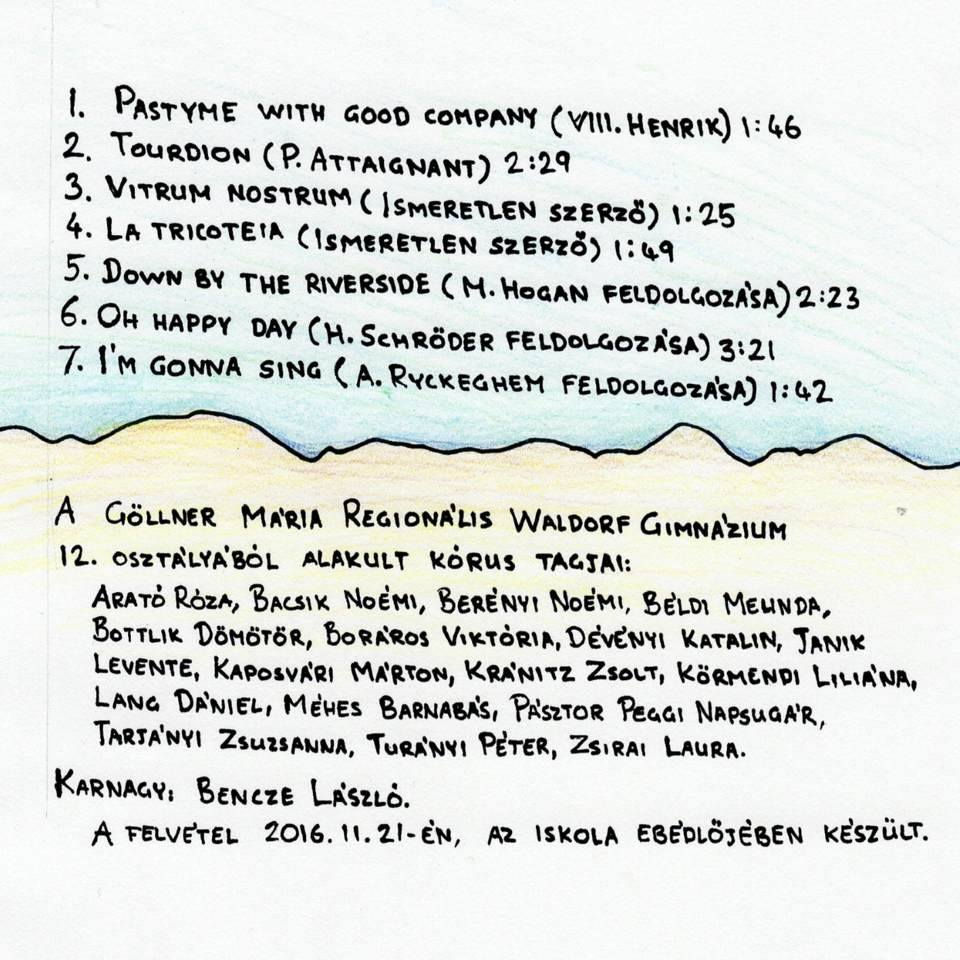 1. Pastyme with good company (VIII. Henrik) 1:46
2. Tourdion (P. Attaignant) 2:29
3. Vitrum nostrum (Ismeretlen szerző) 1:25
4. La tricoteia (Ismeretlen szerző) 1:49
5. Down by the riverside (M. Hogan feldolgozása) 2:23
6. Oh happy day (H. Schröder feldolgozása) 3:21
7. I'm gonna sing (A. Ryckeghem feldolgozása) 1:42
A Göllner Mária Regionális Waldorf Gimnázium
12. osztályából alakult kórus tagjai:
Arató Róza, Bacsik Noémi, Berényi Noémi, Béldi Melinda,
Bottlik Dömötör, Boráros Viktória, Dévényi Katalin, Janik
Levente, Kaposvári Márton, Kránitz Zsolt, Körmendi Liliána,
Lang Dániel, Méhes Barnabás, Pásztor Peggi Napsugár,
Tarjányi Zsuzsanna, Turányi Péter, Zsirai Laura.
Karnagy: Bencze László.
A felvétel 2016.11.21-én, az iskola ebédlőjében készült.